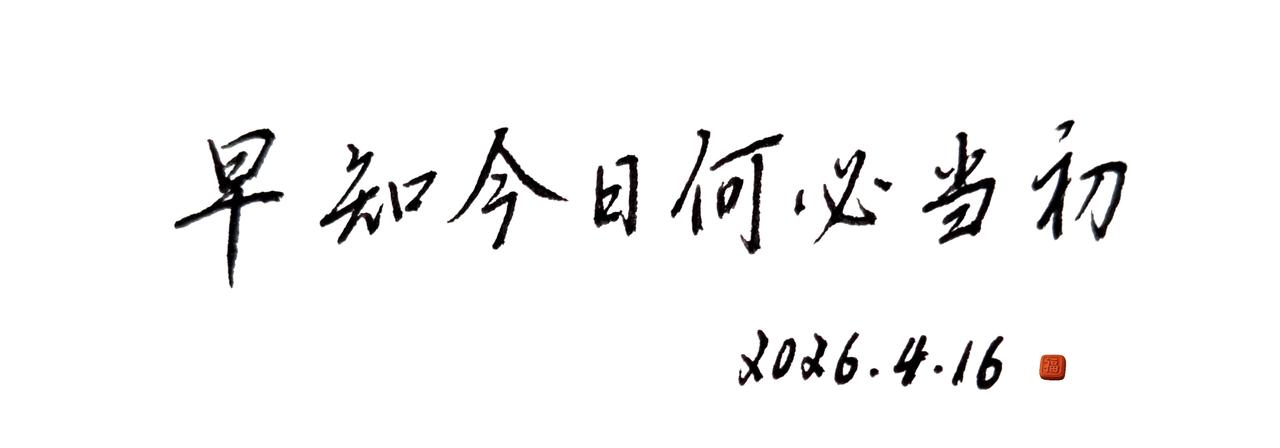 早知今日何必当初
2026.4.16 福